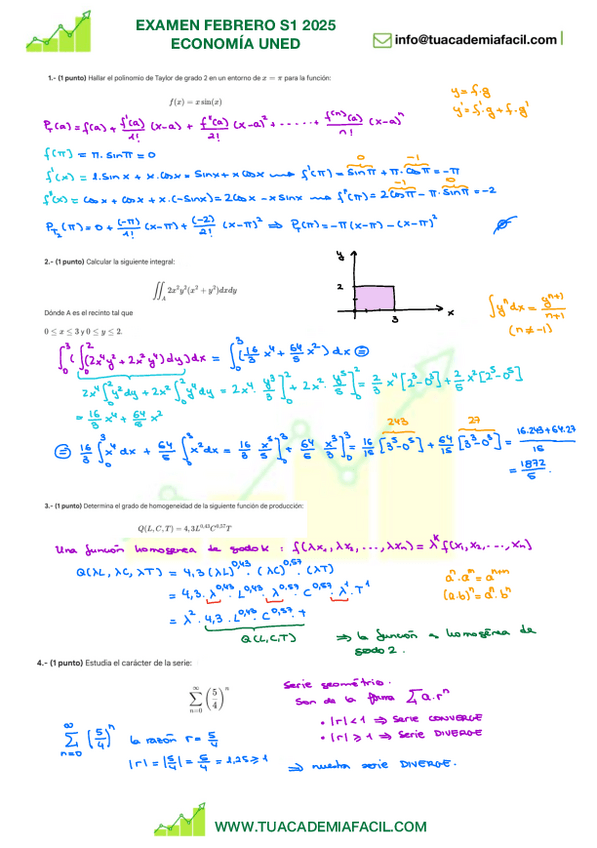 EXAMEN FEBRERO S1 2025
ECONOMÍA UNED
info@tuacademiafacil.com
1.- (1 punto) Hallar el polinomio de Taylor de grado 2 en un entorno de x = π para la función:
f(x) = x sin(x)
y = f·g
y' = f'·g + f·g'
P_T(a) = f(a) + f'(a)/1! (x-a) + f''(a)/2! (x-a)² + ...... + f⁽ⁿ⁾(a)/n! (x-a)ⁿ
f(π) = π·sinπ = 0
0 -1
f'(x) = 1.sinx + x.cosx = sinx + x cosx ⟿ f'(π) = sinπ + π·cosπ = -π
f''(x) = cosx + cosx + x.(-sinx) = 2cosx - x sinx ⟿ f''(π) = 2cosπ - π·sinπ = -2
-1 0
P_T₂(π) = 0 + (-π)/1! (x-π) + (-2)/2! (x-π)² ⇒ P_T(π) = -π(x-π) - (x-π)²
2.- (1 punto) Calcular la siguiente integral:
∬_A 2x²y²(x² + y²)dxdy
y
2
3
x
Dónde A es el recinto tal que
0 ≤ x ≤ 3 y 0 ≤ y ≤ 2.
∫yⁿdx = yⁿ⁺¹/n+1
(n ≠ -1)
∫₀³(∫₀²(2x⁴y² + 2x²y⁴)dy)dx = ∫₀³[16/3 x⁴ + 64/5 x²)dx ⊜
2x⁴∫₀²y²dy + 2x²∫₀²y⁴dy = 2x⁴·y³/3]₀² + 2x²·y⁵/5]₀² = 2/3 x⁴[2³-0³] + 2/5 x²[2⁵-0⁵]
= 16/3 x⁴ + 64/5 x²
243 27
⊜ 16/3 ∫₀³x⁴dx + 64/5 ∫₀³x²dx = 16/3 x⁵/5]₀³ + 64/5 x³/3]₀³ = 16/15 [3⁵-0⁵] + 64/15 [3³-0³] = 16.243+64.27/15
= 1872/5.
3.- (1 punto) Determina el grado de homogeneidad de la siguiente función de producción:
Q(L, C, T) = 4,3L^0,43 C^0,57 T
Una función homogenea de grado k : f(λx₁, λx₂, ..., λxₙ) = λᵏ f(x₁, x₂, ..., xₙ)
Q(λL, λC, λT) = 4,3(λL)^0,43 · (λC)^0,57 · (λT)
= 4,3 · λ^0,43 · L^0,43 · λ^0,57 · C^0,57 · λ¹ · T¹
aⁿ·aᵐ = aⁿ⁺ᵐ
(a·b)ⁿ = aⁿ·bⁿ
= λ² · 4,3 · L^0,43 · C^0,57 · T
Q(L,C,T)
⇒ la función es homogénea de
grado 2.
4.- (1 punto) Estudia el carácter de la serie:
∑_{n=0}^{∞} (5/4)ⁿ
Serie geométrica.
Son de la forma ∑a.rⁿ
• |r| < 1 ⇒ serie CONVERGE
• |r| ≥ 1 ⇒ serie DIVERGE
∑_{n=0}^{∞} (5/4)ⁿ la razón r = 5/4
|r| = |5/4| = 5/4 = 1,25 ≥ 1 ⇒ nuestra serie DIVERGE.
WWW.TUACADEMIAFACIL.COM